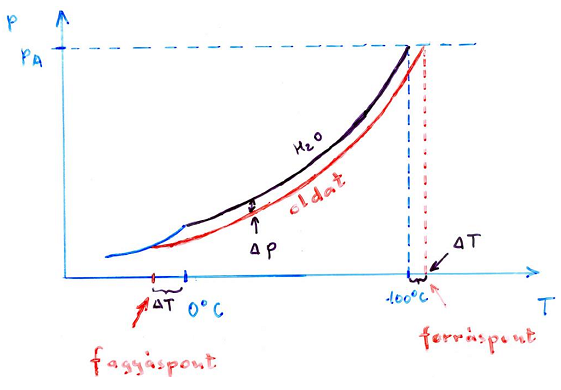 P
PA
H₂O
oldat
Δp
ΔT
ΔT
0°C
100°C
T
fagyáspont
forráspont